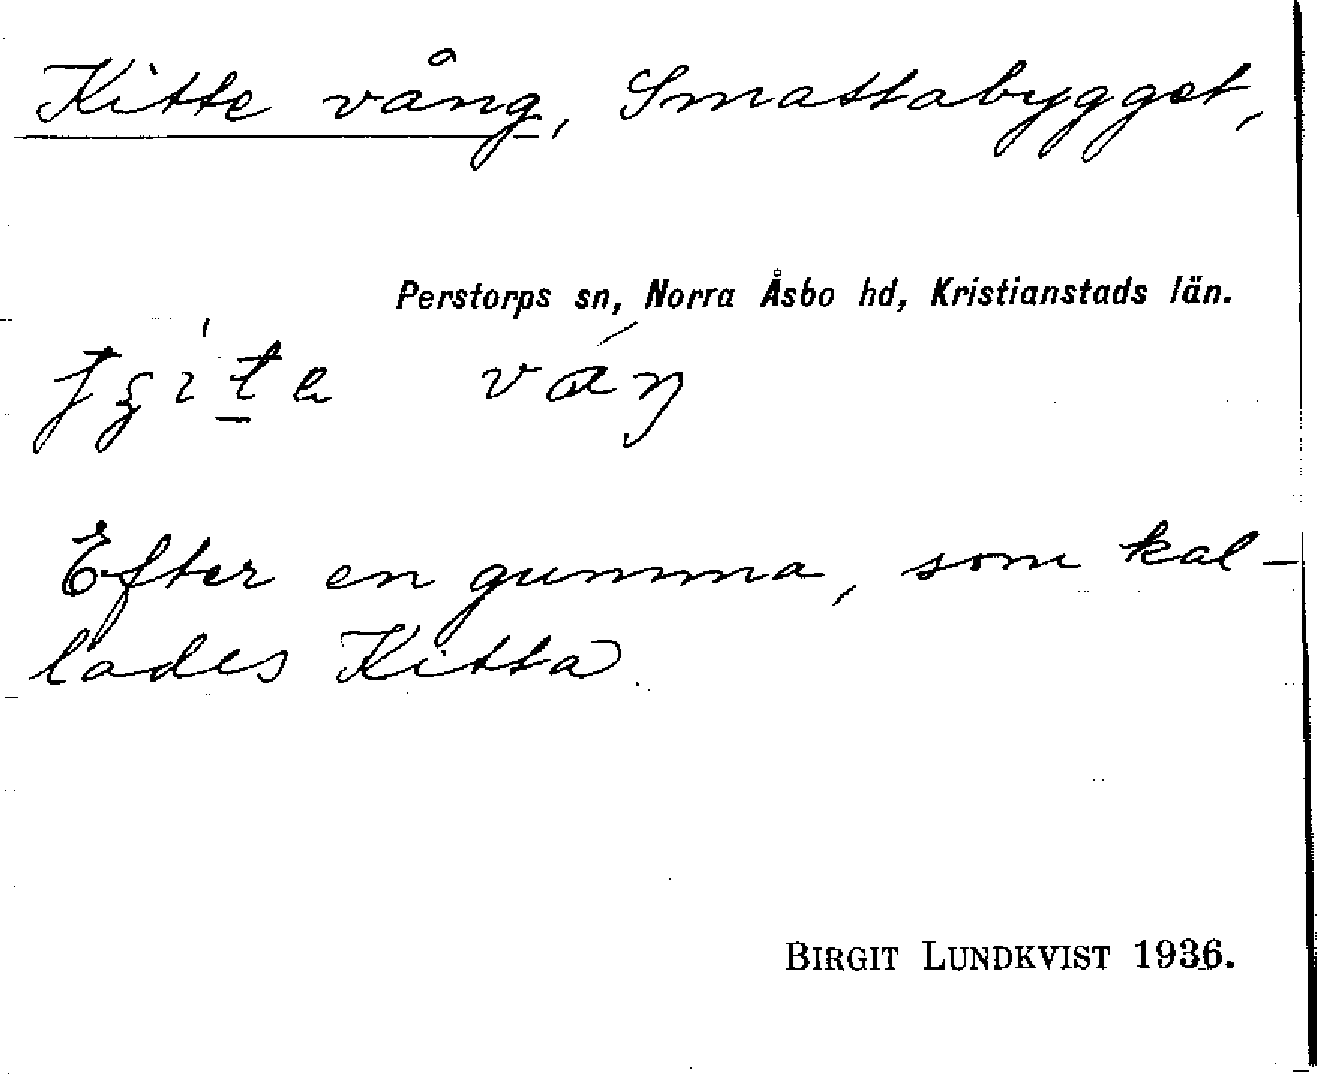 Kitte vång, Smattabygget,
Perstorps sn, Norra Åsbo hd, Kristianstads län.
vaŋ
Efter en gumma, som kal-
lades Kitta.
BIRGIT LUNDKVIST 1936.